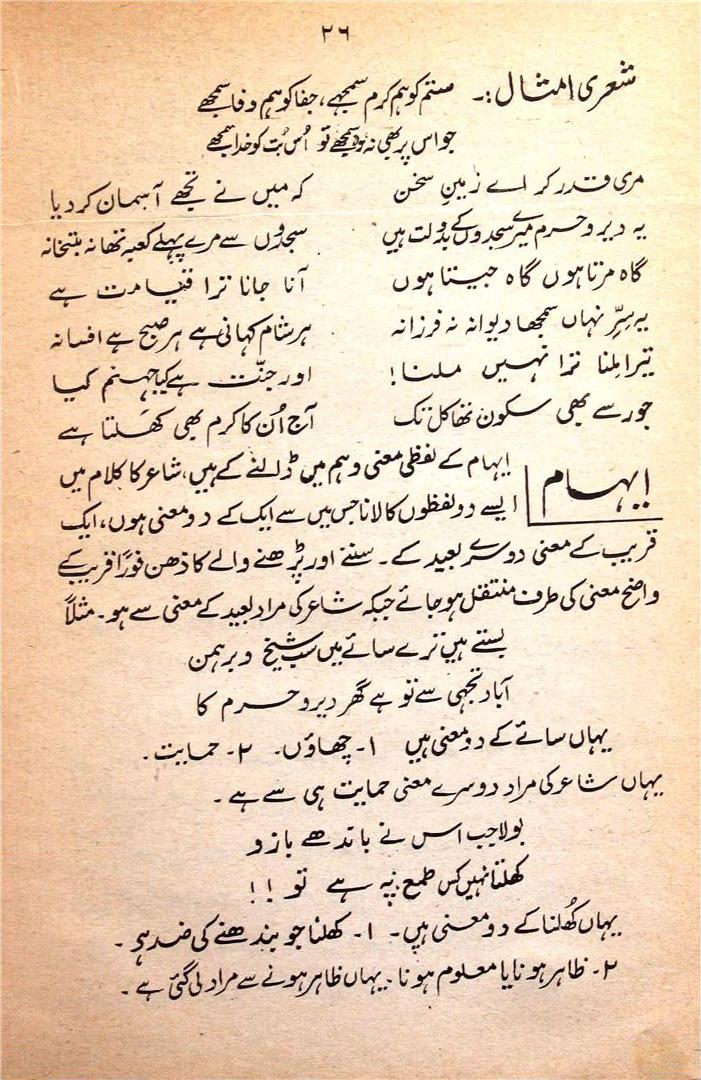 ۲۶
شعری امثال :۔ ستم کو ہم کرم سمجھے، جفا کو ہم وفا سمجھے
جو اس پر بھی نہ وہ سمجھے تو اُس بُت کو خدا سمجھے
مری قدر کر اے زمینِ سخن کہ میں نے تجھے آسماں کر دیا
یہ دیر و حرم میرے سجدوں کے بدولت ہیں سجدوں سے مرے پہلے کعبہ تھا نہ بتخانہ
گاہ مرتا ہوں گاہ جیتا ہوں آنا جانا ترا قیامت ہے
یہ سِرِّ نہاں سمجھا دیوانہ نہ فرزانہ ہر شام کہانی ہے ہر صبح ہے افسانہ
تیرا ملنا ترا نہیں ملنا! اور جنّت ہے کیا جہنم کیا
جور سے بھی سکون تھا کل تک آج اُن کا کرم بھی کَھلتا ہے
ایہام
ایہام کے لفظی معنی وہم میں ڈالنے کے ہیں، شاعر کا کلام میں
ایسے دو لفظوں کا لانا جس میں سے ایک کے دو معنی ہوں، ایک
قریب کے معنی دوسرے بعید کے۔ سننے اور پڑھنے والے کا ذھن فورًا قریب کے
واضح معنی کی طرف منتقل ہو جائے جبکہ شاعر کی مراد بعید کے معنی سے ہو۔ مثلاً
بستے ہیں ترے سائے میں سب شیخ و برہمن
آباد تجھی سے تو ہے گھر دیر و حرم کا
یہاں سائے کے دو معنی ہیں ۱۔ چھاؤں۔ ۲۔ حمایت۔
یہاں شاعر کی مراد دوسرے معنی حمایت ہی سے ہے۔
بولا جب اس نے باندھے بازو
کھلتا نہیں کس طمع پہ ہے تو !!
یہاں کُھلنا کے دو معنی ہیں۔ ۱۔ کھلنا جو بندھنے کی ضد ہو۔
۲۔ ظاہر ہونا یا معلوم ہونا۔ یہاں ظاہر ہونے سے مراد لی گئی ہے۔